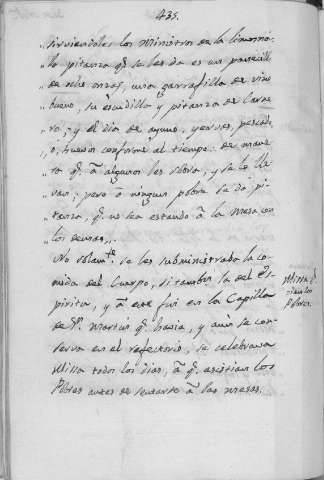 435.
,, sirviendoles los Ministros de la limosna.
,, la pitanza q.e se les da es un panecillo
,, de ocho onzas, una garrafilla de vino
,, bueno, su escudilla y pitanza de Carne
,, ro; y el dia de ayuno, yerves, pescado,
,, o, huevos conforme al tiempo de mane
,, ra q.e â algunos les sobra, y se lo lle
,, van; pero â ningun pobre se da pi-
,, tanza, q.e no sea estando â la mesa con
,, los demas,,.
No solam.te se les subministrada la co-
mida del Cuerpo, si tambien la del Es-
piritu, y â este fin en la Capilla
de S.n Martin q.e havia, y aun se con-
serva en el refectorio, se celebrava
Missa todos los dias, â q.e assistian los
Pobres antes de sentarse â las mesas.
Missa q.e
oian los
Pobres.